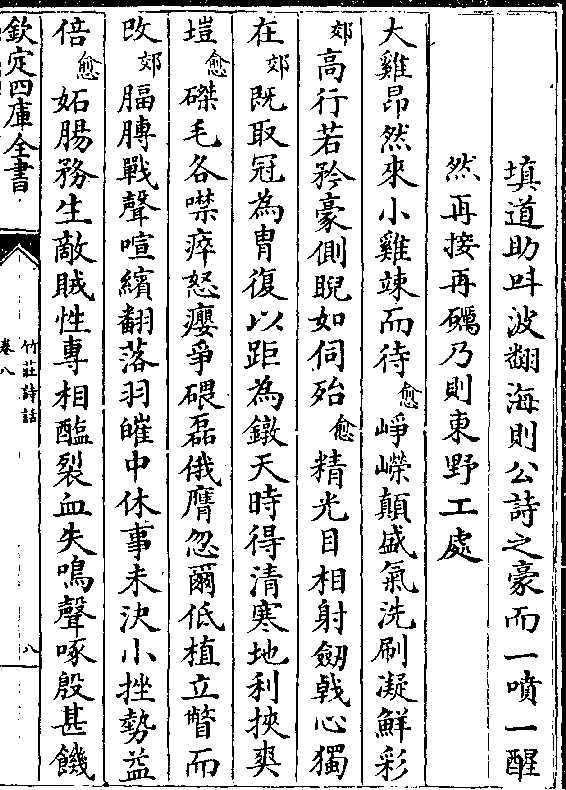 填道助呌波翻海則公詩之豪而一噴一醒
然再接再礪乃則東野工處
大雞昂然來小雞竦而待愈崢嶸顛盛氣洗刷凝鮮彩
郊高行若矜豪側睨如伺殆愈精光目相射劔戟心獨
在郊既取冠為胄復以距為鐓天時得清寒地利挾爽
塏愈磔毛各噤瘁怒癭爭碨磊俄膺忽爾低植立瞥而
改郊腷膊戰聲喧繽翻落羽皠中休事未決小挫勢益
倍愈妬腸務生敵賊性專相醢裂血失鳴聲啄殷甚饑
欽定四庫全書
竹莊詩話
卷八
八